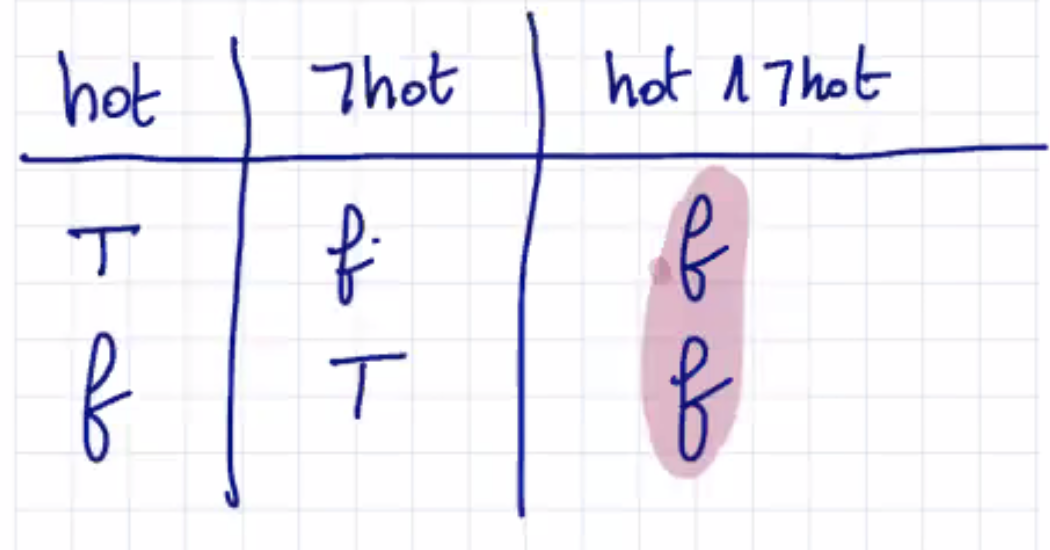 hot ¬hot hot ∧ ¬hot
T f f
f T f